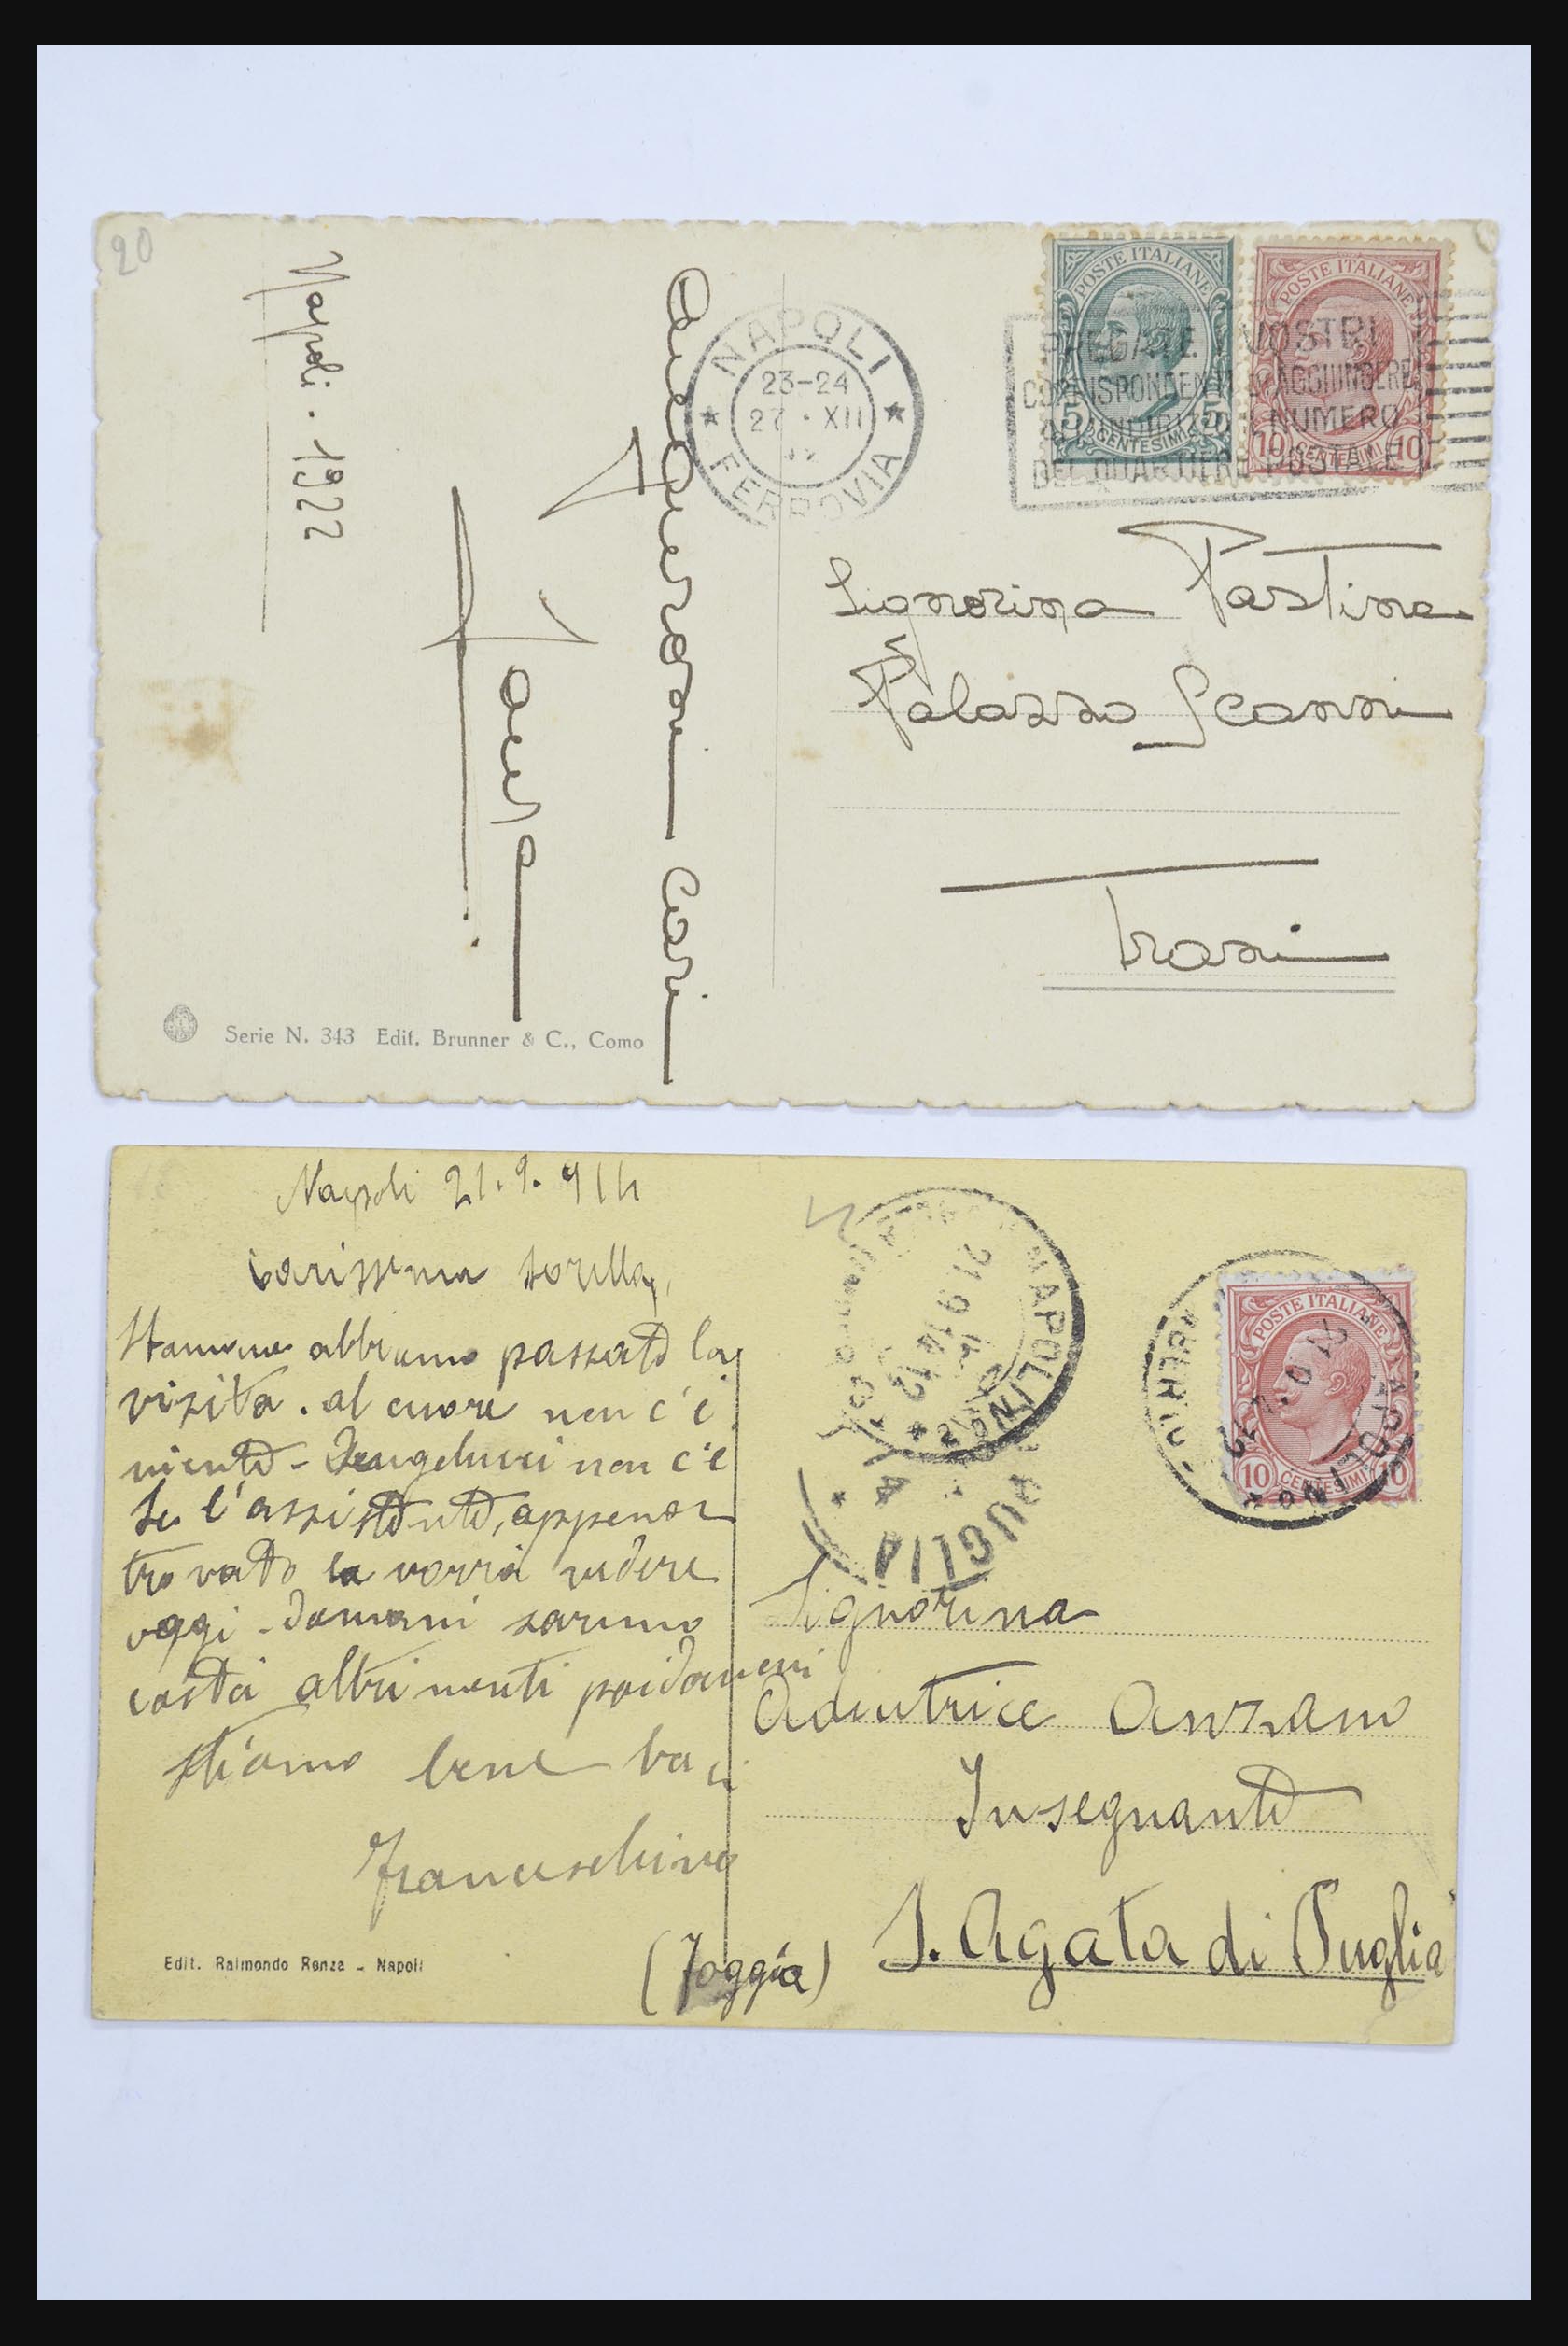 20
Napoli . 1922
Auguroni cari
POSTE ITALIANE
5 CENTESIMI 5
POSTE ITALIANE
10 CENTESIMI 10
NAPOLI
23-24
27 · XII
FERROVIA
PREGATE I VOSTRI
CORRISPONDENTI D'AGGIUNGERE
ALL'INDIRIZZO IL NUMERO
DEL QUARTIERE POSTALE
Signorina Pastina
Palazzo Scanni
Trani
Serie N. 343 Edit. Brunner & C., Como
Napoli 21.9.914
Carissima sorella,
Stamane abbiamo passato la
visita. al cuore non c'è
niente - non c'è
l'assistente, appena
trovato la vorrà vedere
oggi - domani saremo
costà altrimenti poidomani
stiamo bene baci
Franceschino
Edit. Raimondo Renza - Napoli
NAPOLI
21.9.14.12
PUGLIA
POSTE ITALIANE
10 CENTESIMI 10
NAPOLI
Signorina
Adiutrice Anzano
Insegnante
S. Agata di Puglia
(Foggia)